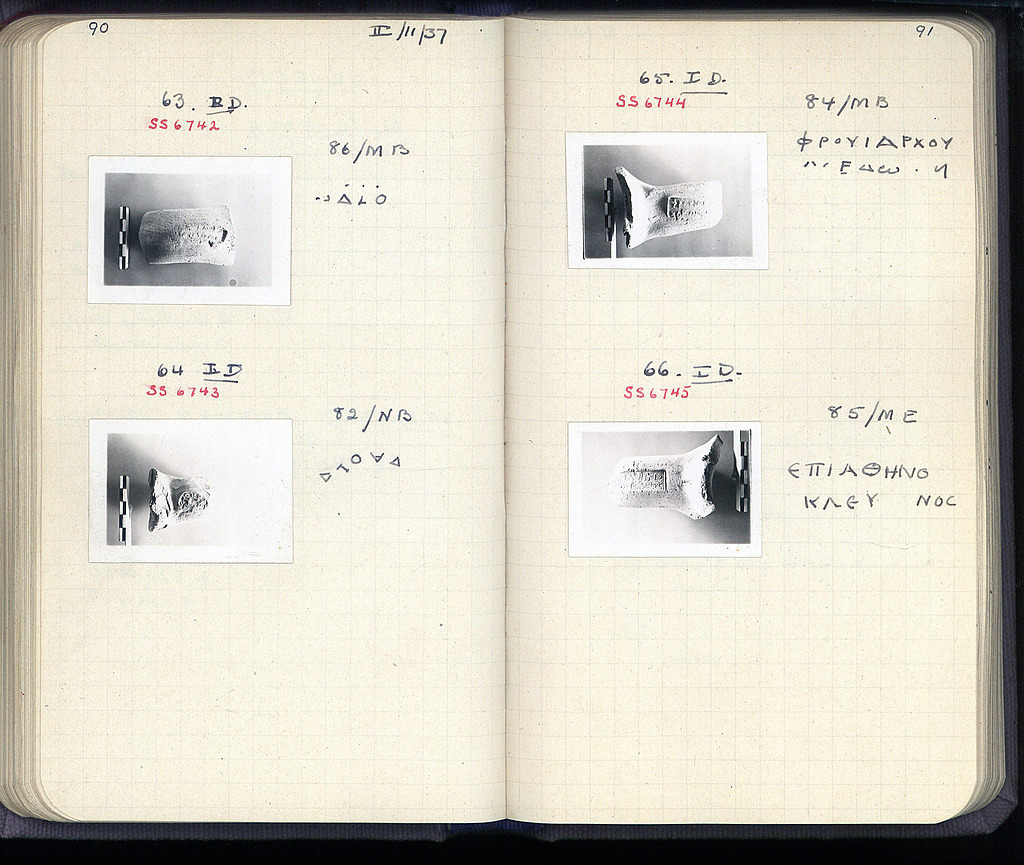 90
II/11/37
63. D.
SS 6742
86/MB
ΔLO
64 ID
SS 6743
82/NB
91
65. ID.
SS 6744
84/MB
ΦΡΟΥΙΑΡΧΟΥ
66. ID.
SS 6745
85/ME
ЄΠΙΑΘΗΝΟ
ΚΛЄΥ ΝΟC